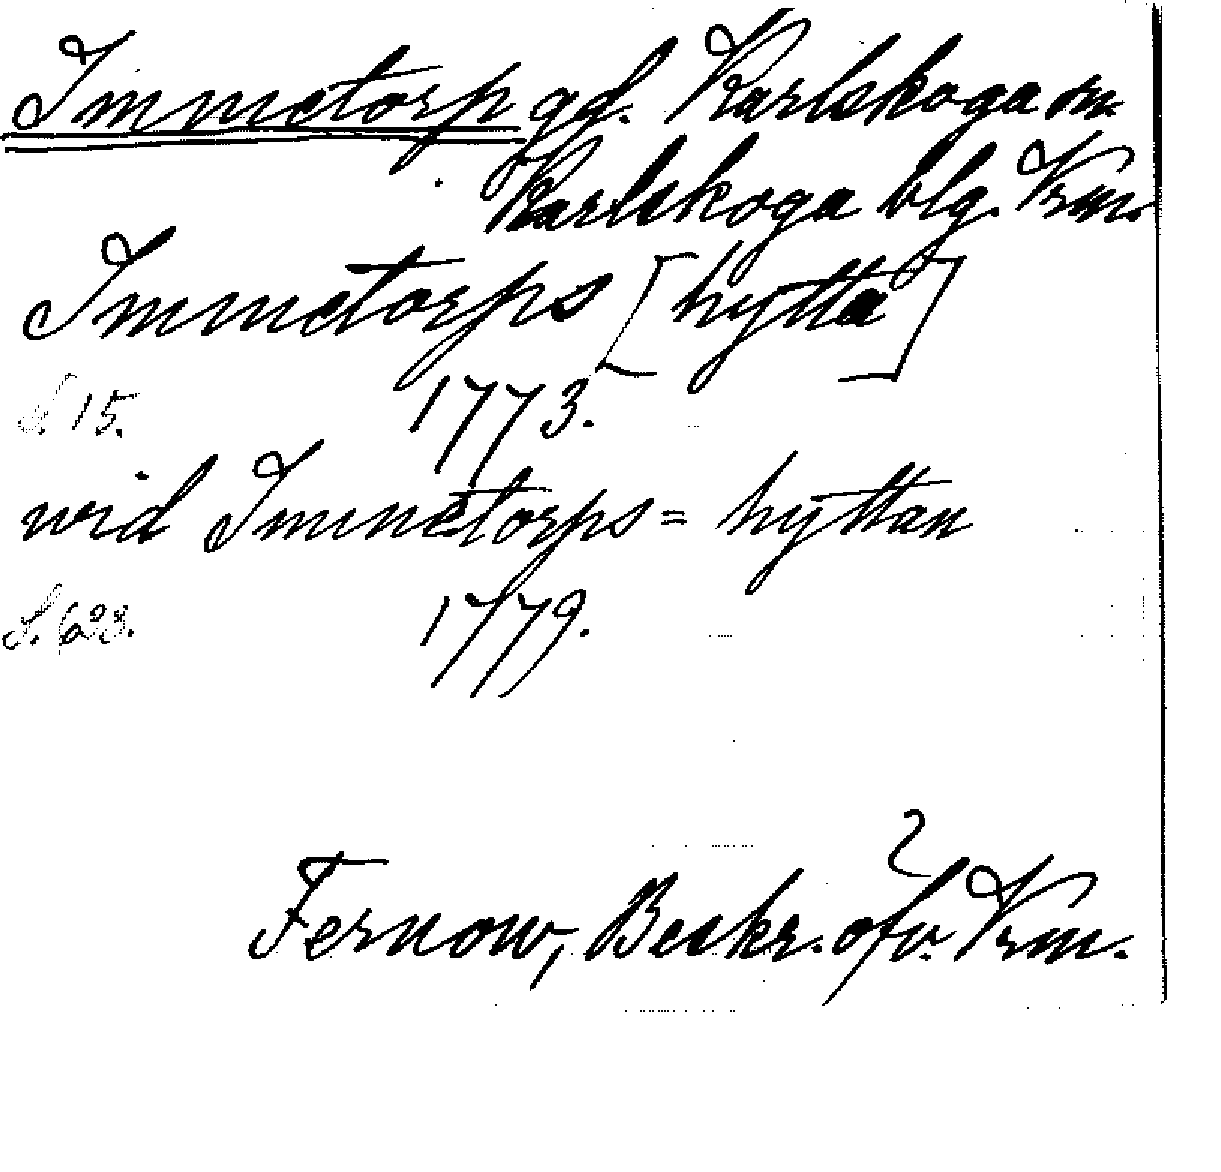 Immetorp gd. Karlskoga sn.
Karlskoga blg. Vrm.
Immetorps [hytta]
S. 15. 1773.
wid Immetorps= hyttan
S. 623. 1779.
Fernow, Beskr. öfv. Vrm.